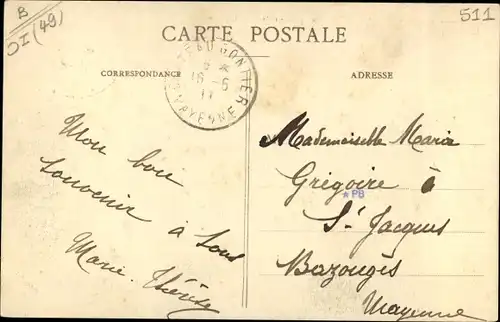 B
DI (49)
511
CARTE POSTALE
CORRESPONDANCE
ADRESSE
GONTIER
16-5
11
MAYENNE
Mon bon
souvenir
à tous
Marie-Thérèse
Mademoiselle Maria
Grégoire à
*PB
St Jacques
Bazouges
Mayenne